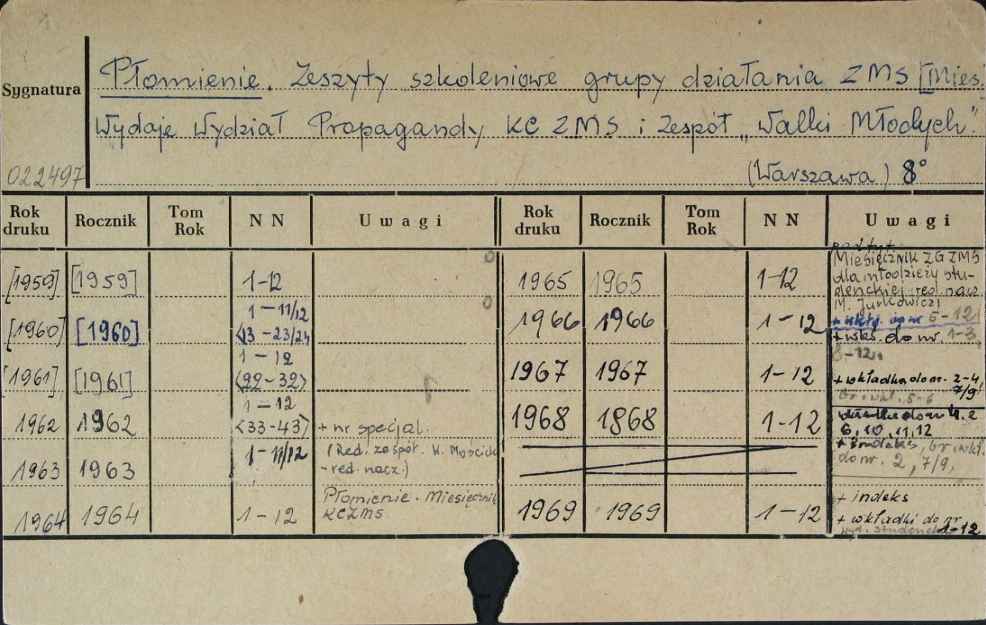 Sygnatura
Płomienie. Zeszyty szkoleniowe grupy działania ZMS [Mies.
Wydaje Wydział Propagandy KC ZMS i Zespół „Walki Młodych".
022497
(Warszawa) 8°
Rok druku Rocznik Tom Rok NN Uwagi Rok druku Rocznik Tom Rok NN Uwagi
[1959] [1959] 1-12
[1960] [1960] 1-11/12 <13-23/24
[1961] [1961] 1-12 <22-32>
1962 1962 1-12 <33-43> + nr specjal.
1963 1963 1-11/12 (Red. zespół. K. - red. nacz.)
1964 1964 1-12 Płomienie. Miesięcznik KCZMS
1965 1965 1-12 Miesięcznik ZG ZMS dla młodzieży studenckiej red. nacz. M. Jurkowicz]
1966 1966 1-12 5-12 + wkł. do nr. 1-3, 8-12.
1967 1967 1-12 + wkładka do nr. 2-4 7/9
1968 1868 1-12 6, 10, 11, 12 + indeks, do nr. 2, 7/9,
1969 1969 1-12 + indeks + wkładki do nr 1-12